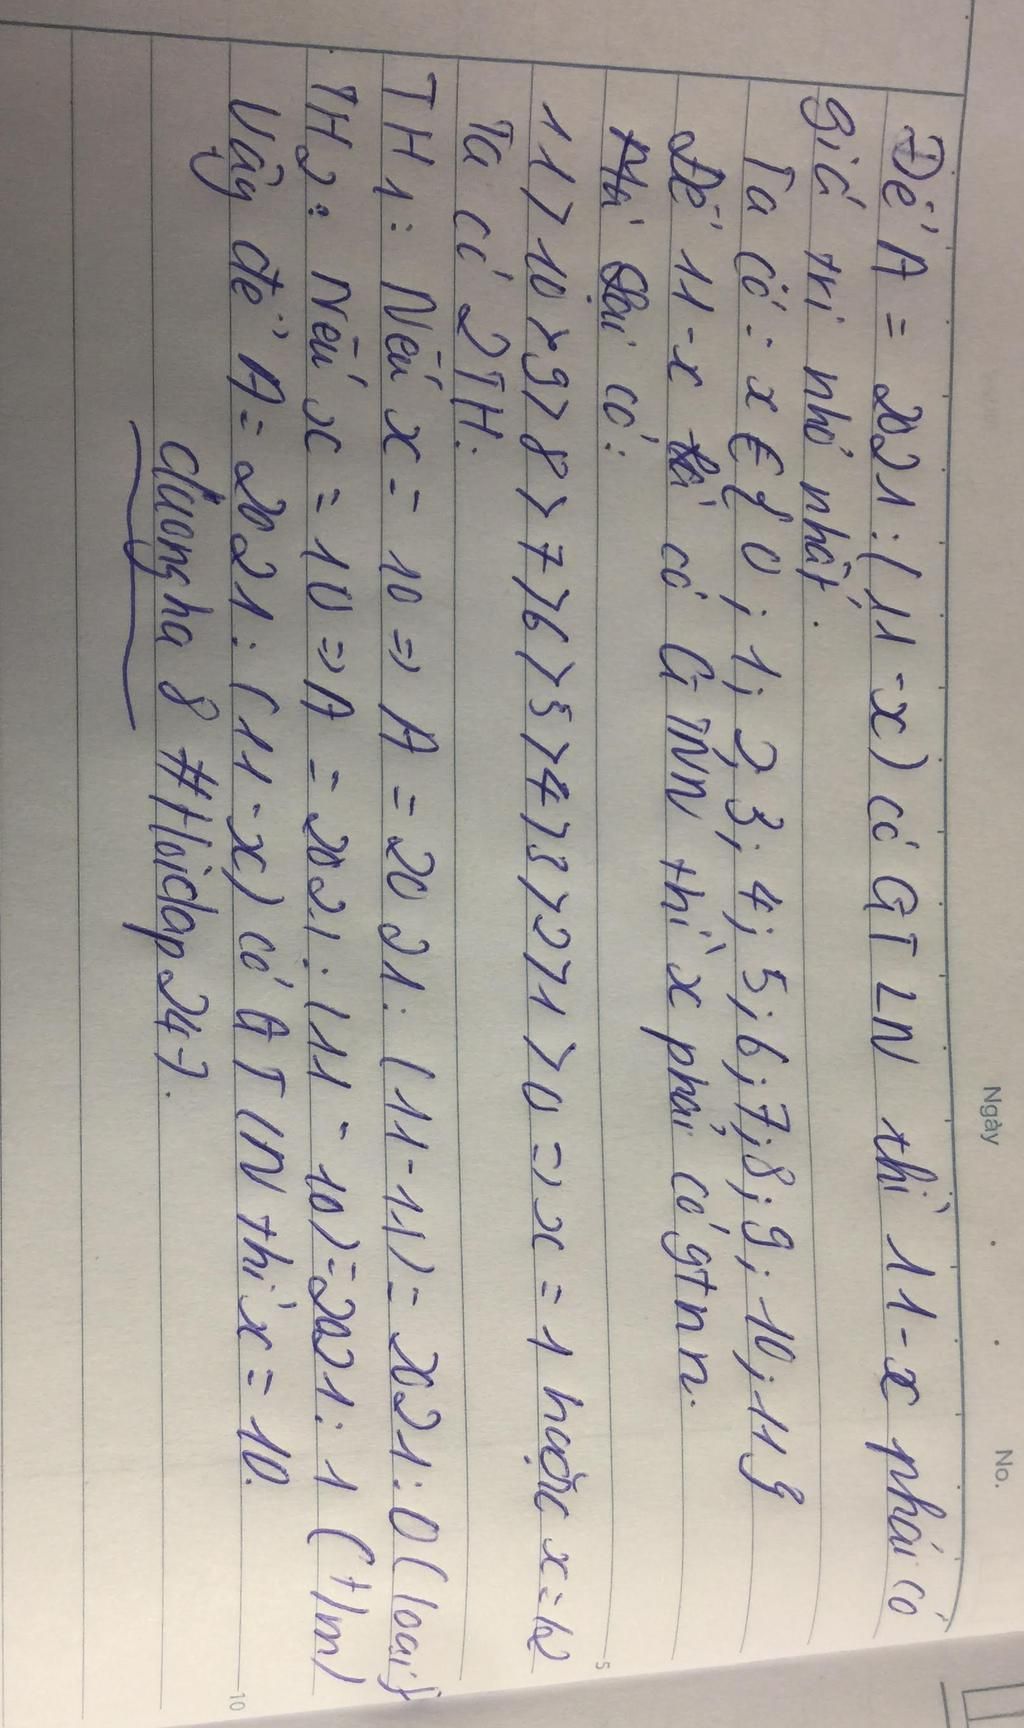 Ngày No.
Để A = 2021 : (11 - x) có GTLN thì 11 - x phải có
giá trị nhỏ nhất.
Ta có : x € { 0 ; 1 ; 2 ; 3 ; 4 ; 5 ; 6 ; 7 ; 8 ; 9 ; 10 ; 11 }
Để 11 - x có GTNN thì x phải có gtnn.
Mà lại có :
11 > 10 > 9 > 8 > 7 > 6 > 5 > 4 > 3 > 2 > 1 > 0 => x = 1 hoặc x =
5
Ta có 2TH:
TH1: Nếu x = 10 => A = 2021 : (11 - 11) = 2021 : 0 (loại)
TH2: Nếu x = 10 => A = 2021 : (11 - 10) = 2021 : 1 (t/m)
Vậy để A = 2021 : (11 - x) có GTLN thì x = 10.
10
duongha 8 #Hoidap247.